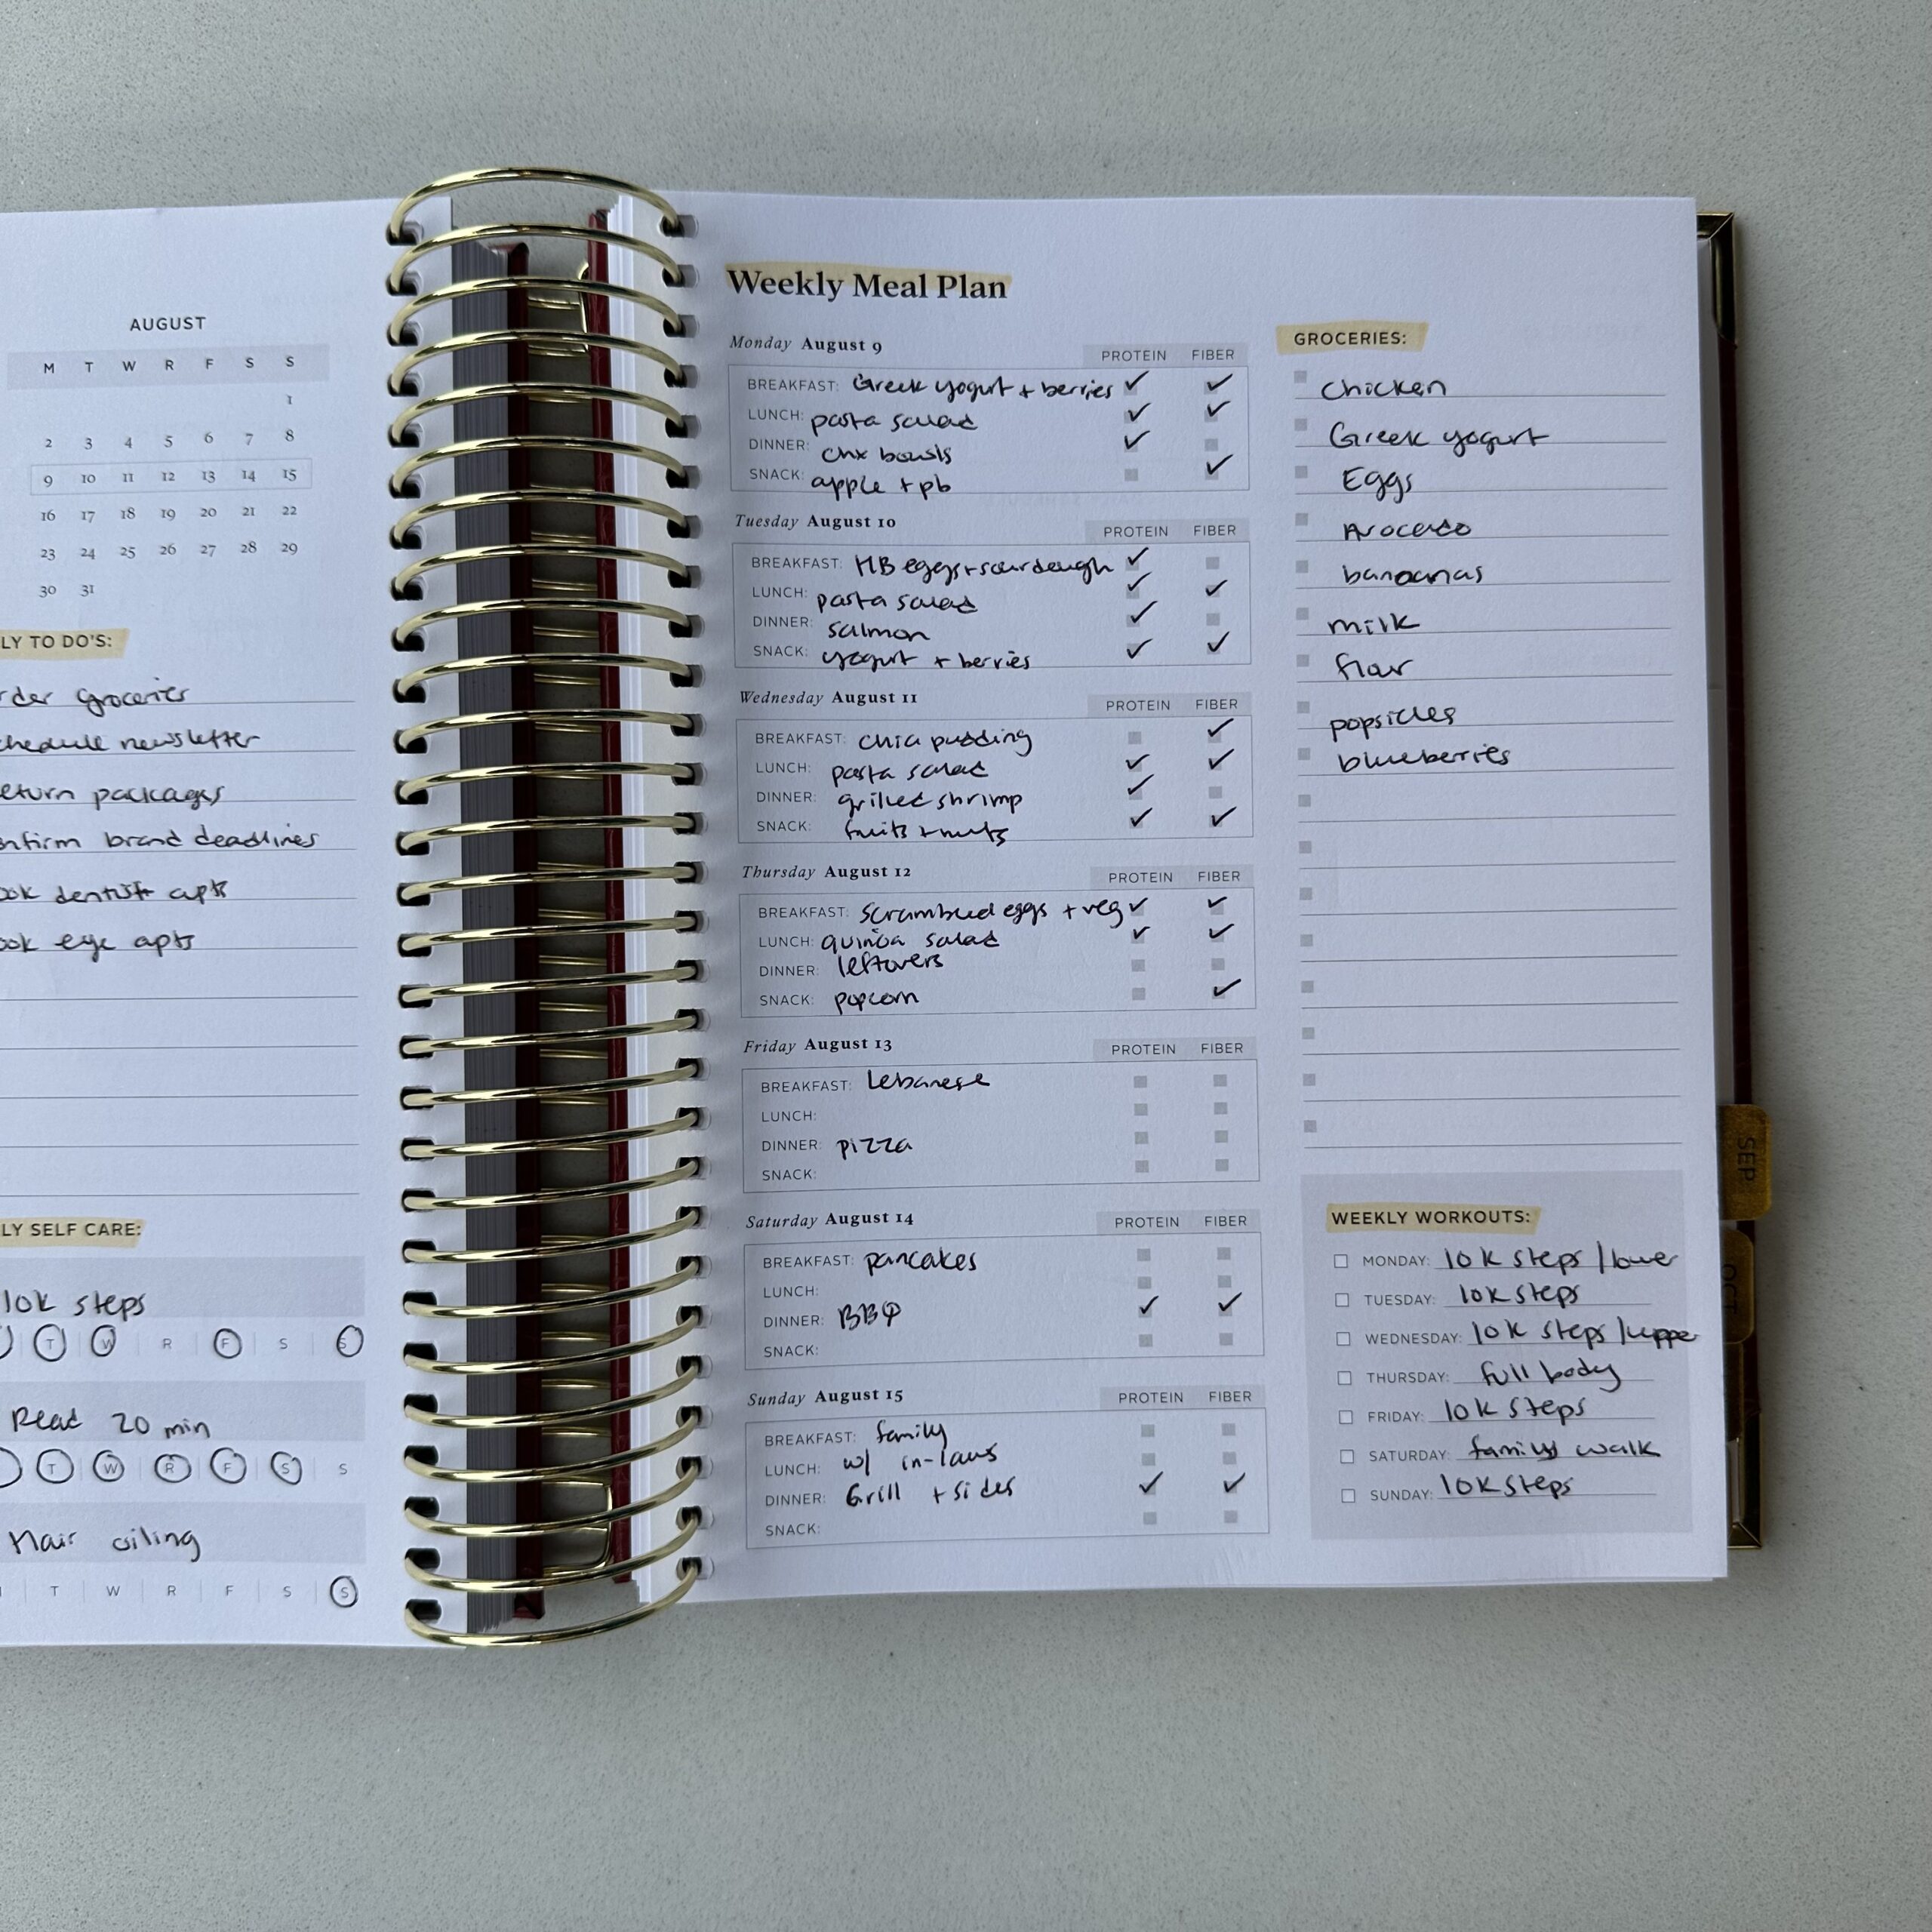 AUGUST
M T W R F S S
1
2 3 4 5 6 7 8
9 10 11 12 13 14 15
16 17 18 19 20 21 22
23 24 25 26 27 28 29
30 31
LY TO DO'S:
rder groceries
chedule newsletter
eturn packages
nfirm brand deadlines
ook dentist apts
ook eye apts
LY SELF CARE:
10k steps
T W R F S S
Read 20 min
T W R F S S
Hair oiling
T W R F S S
Weekly Meal Plan
Monday August 9 PROTEIN FIBER
BREAKFAST: Greek yogurt + berries ✓ ✓
LUNCH: pasta salad ✓ ✓
DINNER: chx bowls ✓
SNACK: apple + pb ✓
Tuesday August 10 PROTEIN FIBER
BREAKFAST: HB eggs + sourdough ✓
LUNCH: pasta salad ✓ ✓
DINNER: salmon ✓
SNACK: yogurt + berries ✓ ✓
Wednesday August 11 PROTEIN FIBER
BREAKFAST: chia pudding ✓
LUNCH: pasta salad ✓ ✓
DINNER: grilled shrimp ✓
SNACK: fruits + nuts ✓ ✓
Thursday August 12 PROTEIN FIBER
BREAKFAST: scrambled eggs + veg ✓ ✓
LUNCH: quinoa salad ✓ ✓
DINNER: leftovers
SNACK: popcorn ✓
Friday August 13 PROTEIN FIBER
BREAKFAST: Lebanese
LUNCH:
DINNER: pizza
SNACK:
Saturday August 14 PROTEIN FIBER
BREAKFAST: pancakes
LUNCH:
DINNER: BBQ ✓ ✓
SNACK:
Sunday August 15 PROTEIN FIBER
BREAKFAST: family
LUNCH: w/ in-laws
DINNER: Grill + sides ✓ ✓
SNACK:
GROCERIES:
Chicken
Greek yogurt
Eggs
Avocado
bananas
milk
flour
popsicles
blueberries
WEEKLY WORKOUTS:
MONDAY: 10k steps / lower
TUESDAY: 10k steps
WEDNESDAY: 10k steps / upper
THURSDAY: full body
FRIDAY: 10k steps
SATURDAY: family walk
SUNDAY: 10k steps
SEP
OCT